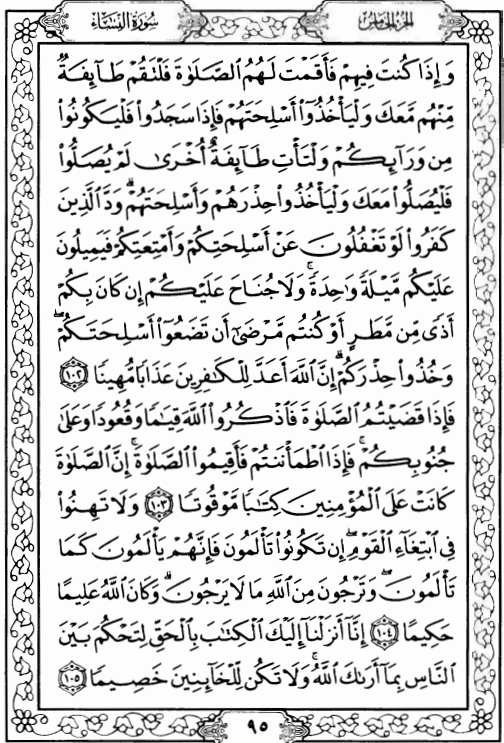 سُورَةُ النِّسَاءِ الجُزْءُ الخَامِسُ
وَإِذَا كُنتَ فِيهِمْ فَأَقَمْتَ لَهُمُ ٱلصَّلَوٰةَ فَلْتَقُمْ طَآئِفَةٌ
مِّنْهُم مَّعَكَ وَلْيَأْخُذُوٓا۟ أَسْلِحَتَهُمْ فَإِذَا سَجَدُوا۟ فَلْيَكُونُوا۟
مِن وَرَآئِكُمْ وَلْتَأْتِ طَآئِفَةٌ أُخْرَىٰ لَمْ يُصَلُّوا۟
فَلْيُصَلُّوا۟ مَعَكَ وَلْيَأْخُذُوا۟ حِذْرَهُمْ وَأَسْلِحَتَهُمْ ۗ وَدَّ ٱلَّذِينَ
كَفَرُوا۟ لَوْ تَغْفُلُونَ عَنْ أَسْلِحَتِكُمْ وَأَمْتِعَتِكُمْ فَيَمِيلُونَ
عَلَيْكُم مَّيْلَةً وَٰحِدَةً ۚ وَلَا جُنَاحَ عَلَيْكُمْ إِن كَانَ بِكُمْ
أَذًى مِّن مَّطَرٍ أَوْ كُنتُم مَّرْضَىٰٓ أَن تَضَعُوٓا۟ أَسْلِحَتَكُمْ ۖ
وَخُذُوا۟ حِذْرَكُمْ ۗ إِنَّ ٱللَّهَ أَعَدَّ لِلْكَٰفِرِينَ عَذَابًا مُّهِينًا ١٠٢
فَإِذَا قَضَيْتُمُ ٱلصَّلَوٰةَ فَٱذْكُرُوا۟ ٱللَّهَ قِيَٰمًا وَقُعُودًا وَعَلَىٰ
جُنُوبِكُمْ ۚ فَإِذَا ٱطْمَأْنَنتُمْ فَأَقِيمُوا۟ ٱلصَّلَوٰةَ ۚ إِنَّ ٱلصَّلَوٰةَ
كَانَتْ عَلَى ٱلْمُؤْمِنِينَ كِتَٰبًا مَّوْقُوتًا ١٠٣ وَلَا تَهِنُوا۟
فِى ٱبْتِغَآءِ ٱلْقَوْمِ ۖ إِن تَكُونُوا۟ تَأْلَمُونَ فَإِنَّهُمْ يَأْلَمُونَ كَمَا
تَأْلَمُونَ ۖ وَتَرْجُونَ مِنَ ٱللَّهِ مَا لَا يَرْجُونَ ۗ وَكَانَ ٱللَّهُ عَلِيمًا
حَكِيمًا ١٠٤ إِنَّآ أَنزَلْنَآ إِلَيْكَ ٱلْكِتَٰبَ بِٱلْحَقِّ لِتَحْكُمَ بَيْنَ
ٱلنَّاسِ بِمَآ أَرَىٰكَ ٱللَّهُ ۚ وَلَا تَكُن لِّلْخَآئِنِينَ خَصِيمًا ١٠٥
٩٥